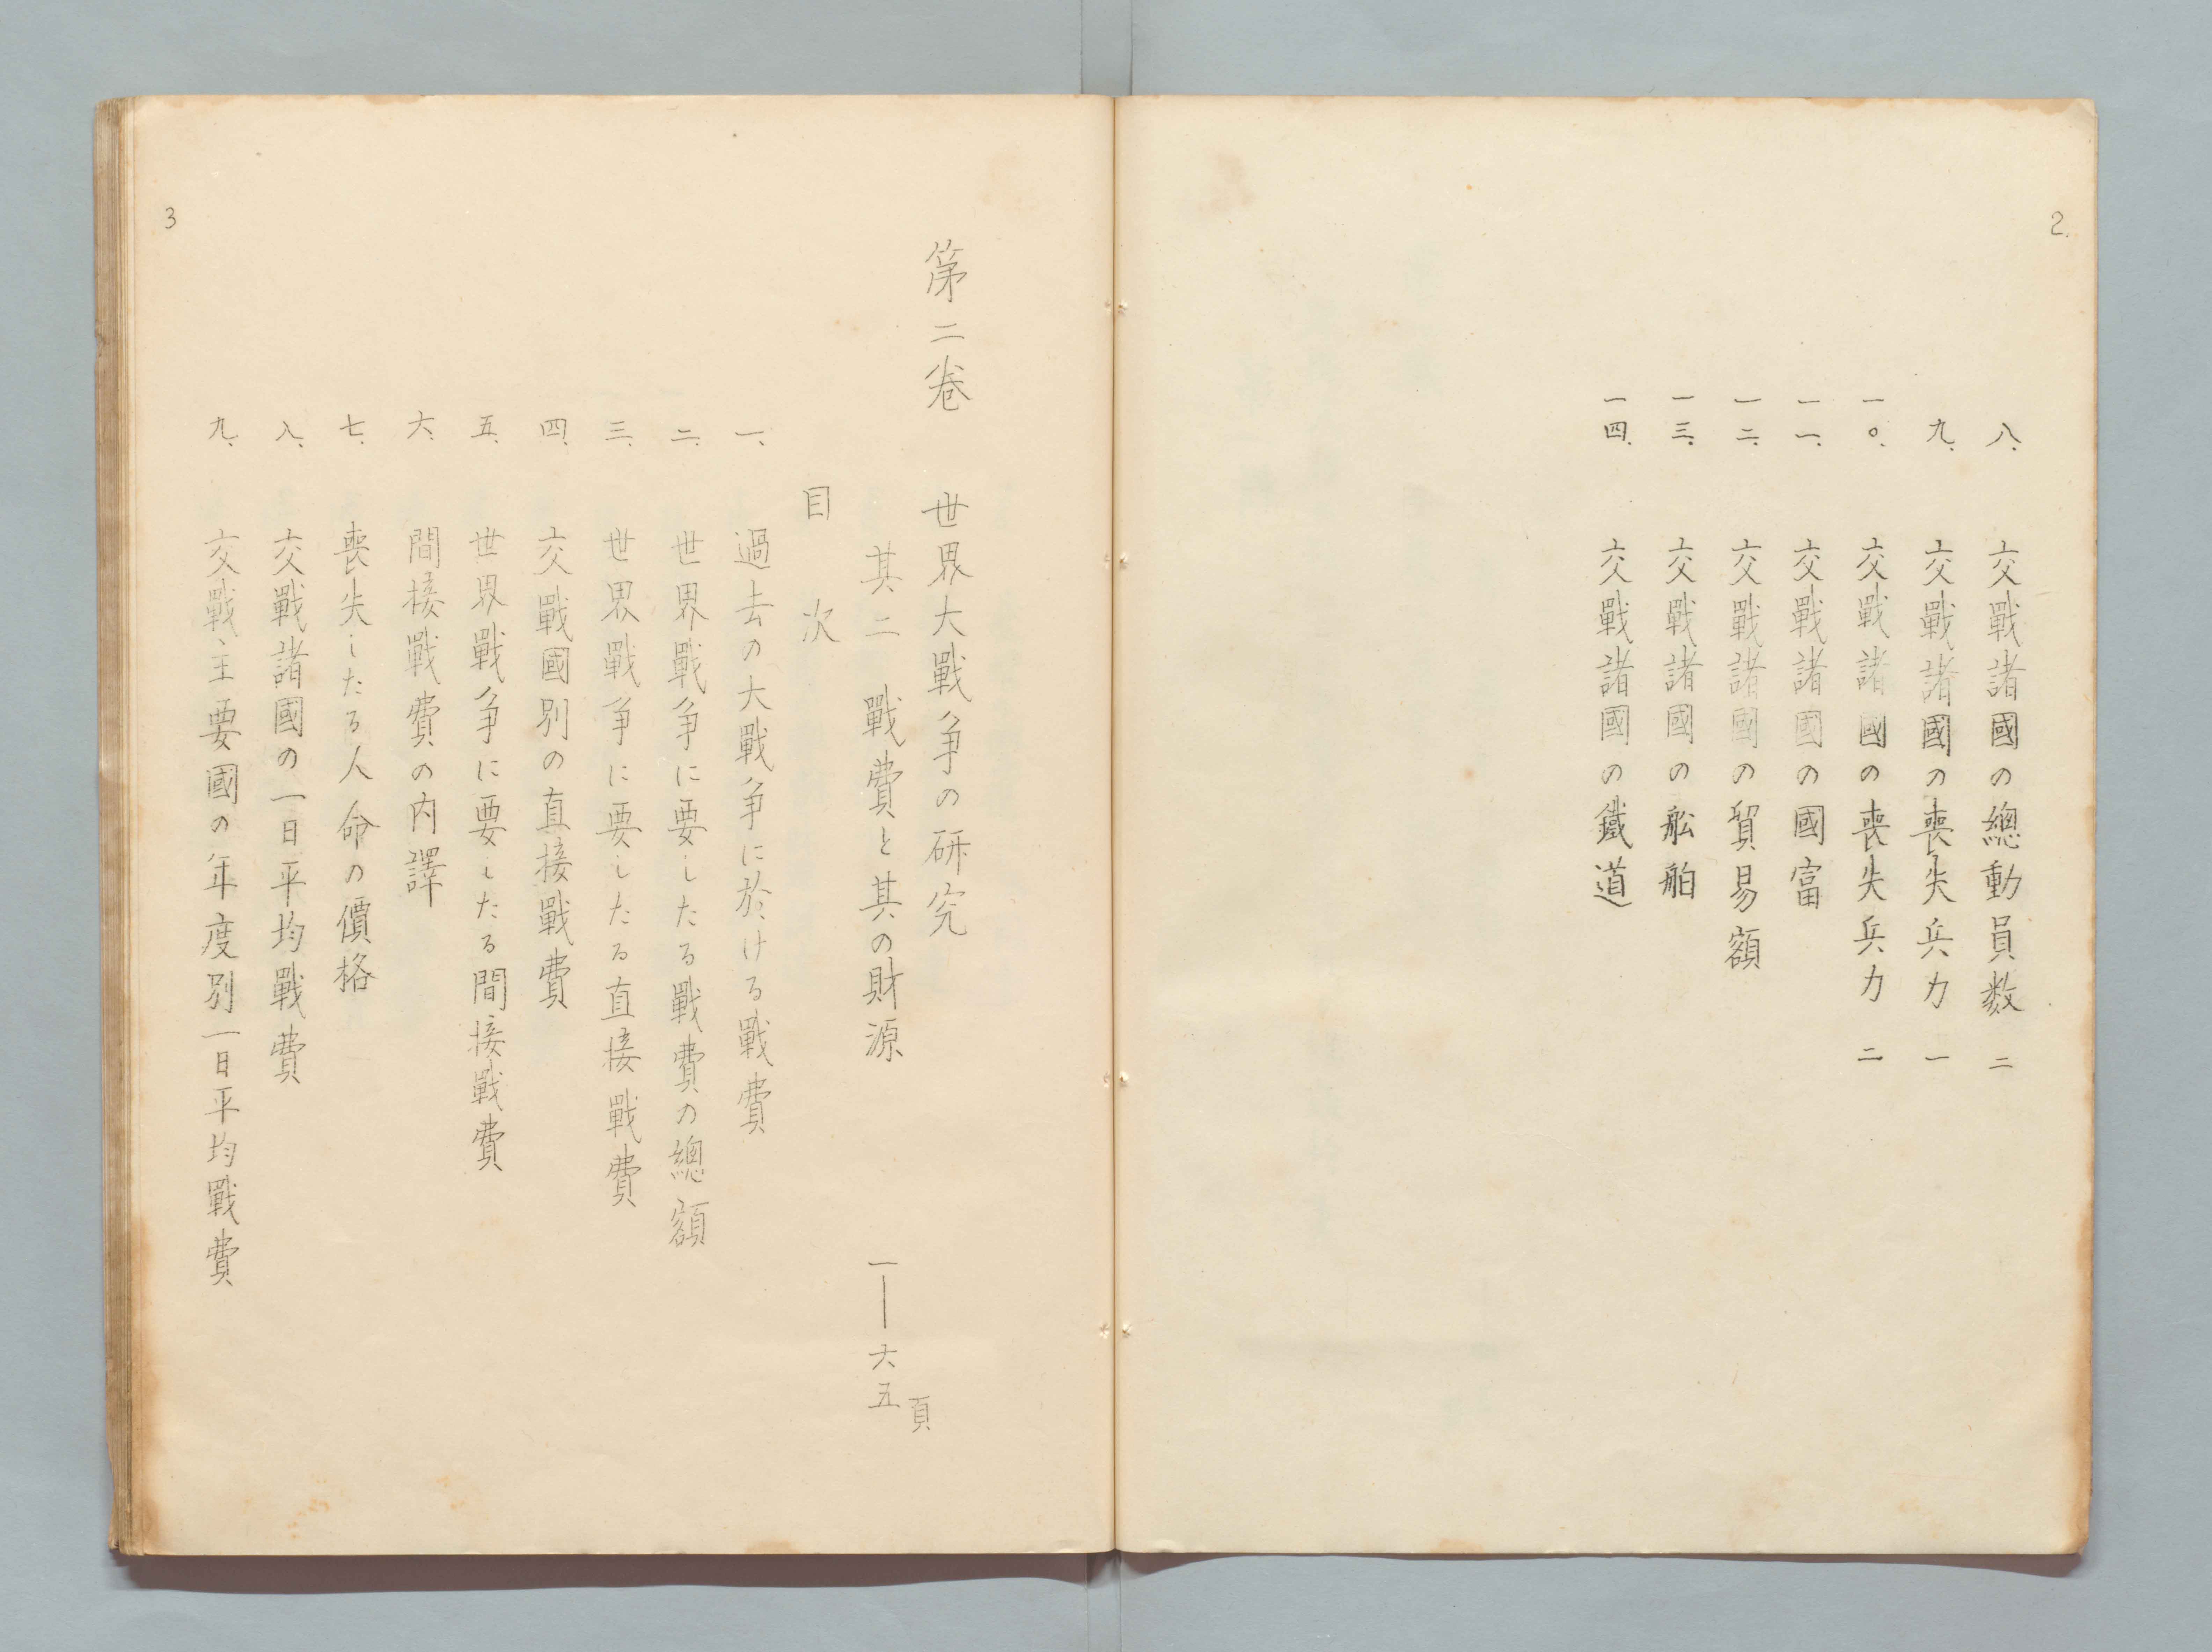 2.
八、交戰諸國の總動員数 二
九、交戰諸國の喪失兵力 一
一〇、交戰諸國の喪失兵力 二
一一、交戰諸國の國富
一二、交戰諸國の貿易額
一三、交戰諸國の舩舶
一四、交戰諸國の鐵道
第二巻 世界大戰争の研究
其二 戰費と其の財源 一―六五頁
目次
一、過去の大戰争に於ける戰費
二、世界戰争に要したる戰費の總額
三、世界戰争に要したる直接戰費
四、交戰國別の直接戰費
五、世界戰争に要したる間接戰費
六、間接戰費の内譯
七、喪失したる人命の價格
八、交戰諸國の一日平均戰費
九、交戰主要國の年度別一日平均戰費
3